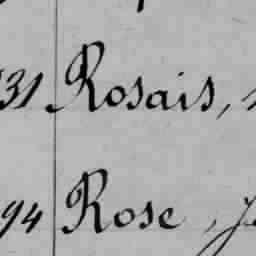 31 Rosais,
94 Rose,